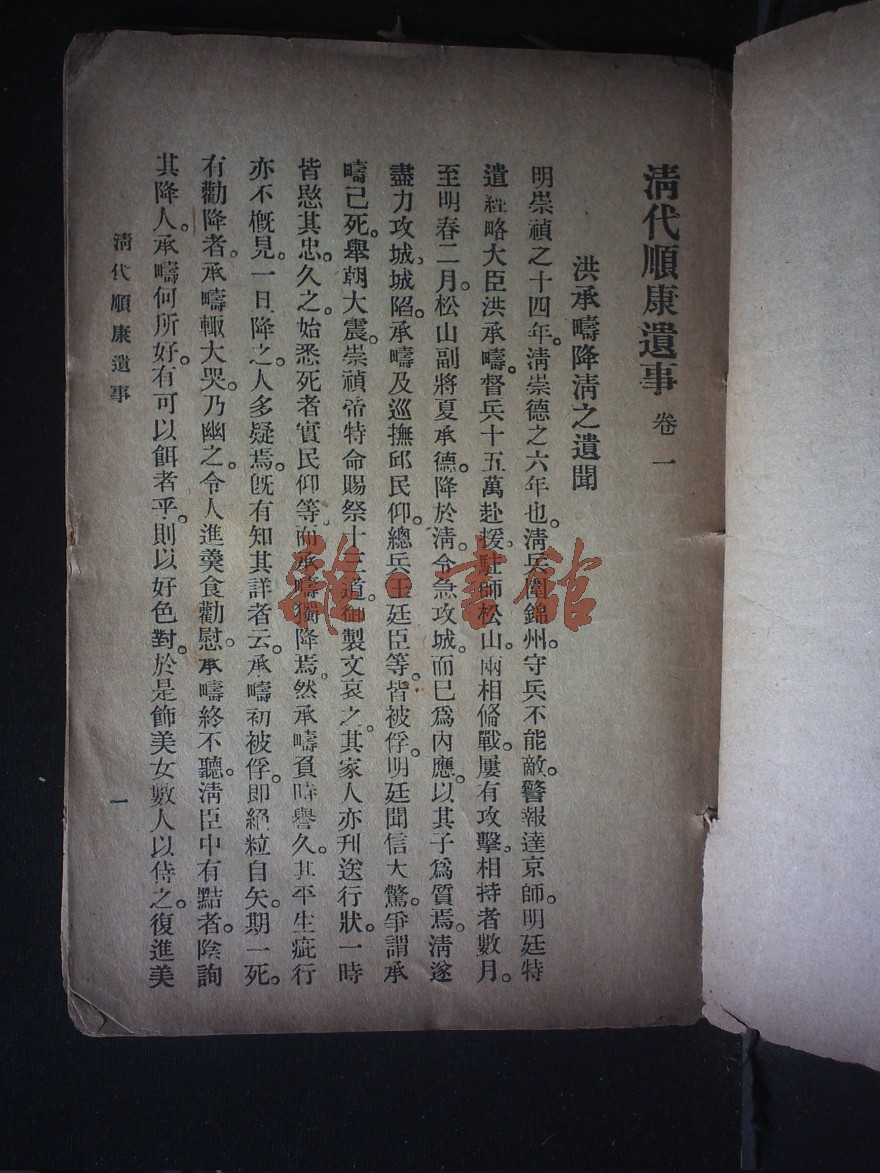 清代順康遺事 卷一
洪承疇降清之遺聞
明崇禎之十四年。清崇德之六年也。清兵圍錦州。守兵不能敵。警報達京師。明廷特
遣經略大臣洪承疇。督兵十五萬赴援。駐師松山。兩相俻戰。屢有攻擊。相持者數月。
至明春二月。松山副將夏承德。降於清。令急攻城。而已爲內應。以其子爲質焉。清遂
盡力攻城、城陷。承疇及巡撫邱民仰。總兵王廷臣等。皆被俘。明廷聞信大驚。爭謂承
疇已死。舉朝大震。崇禎帝特命賜祭十三道。御製文哀之。其家人亦刋送行狀。一時
皆愍其忠。久之。始悉死者實民仰等。而承疇獨降焉。然承疇負時譽久。其平生疵行
亦不槪見。一日降之。人多疑焉。旣有知其詳者云。承疇初被俘。即絕粒自矢。期一死。
有勸降者。承疇輙大哭。乃幽之。令人進羹食勸慰。承疇終不聽。清臣中有黠者。陰詢
其降人。承疇何所好。有可以餌者乎。則以好色對。於是飾美女數人以侍之。復進美
清代順康遺事
一
雜·書館